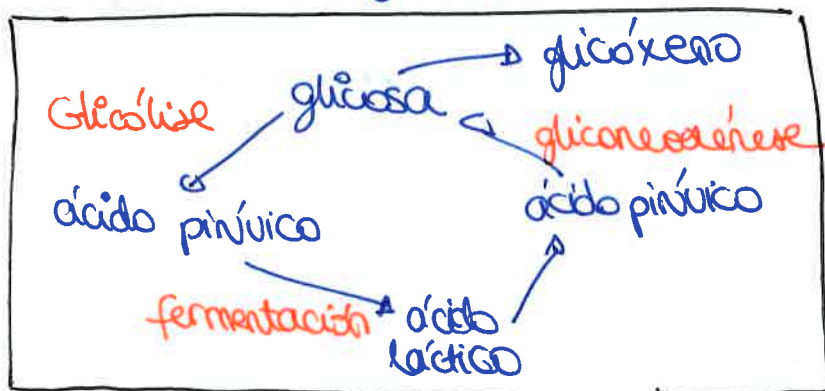 glicóxeno
glicosa
Glicólise
gliconeoxénese
ácido pirúvico
ácido pirúvico
fermentación
ácido
láctico